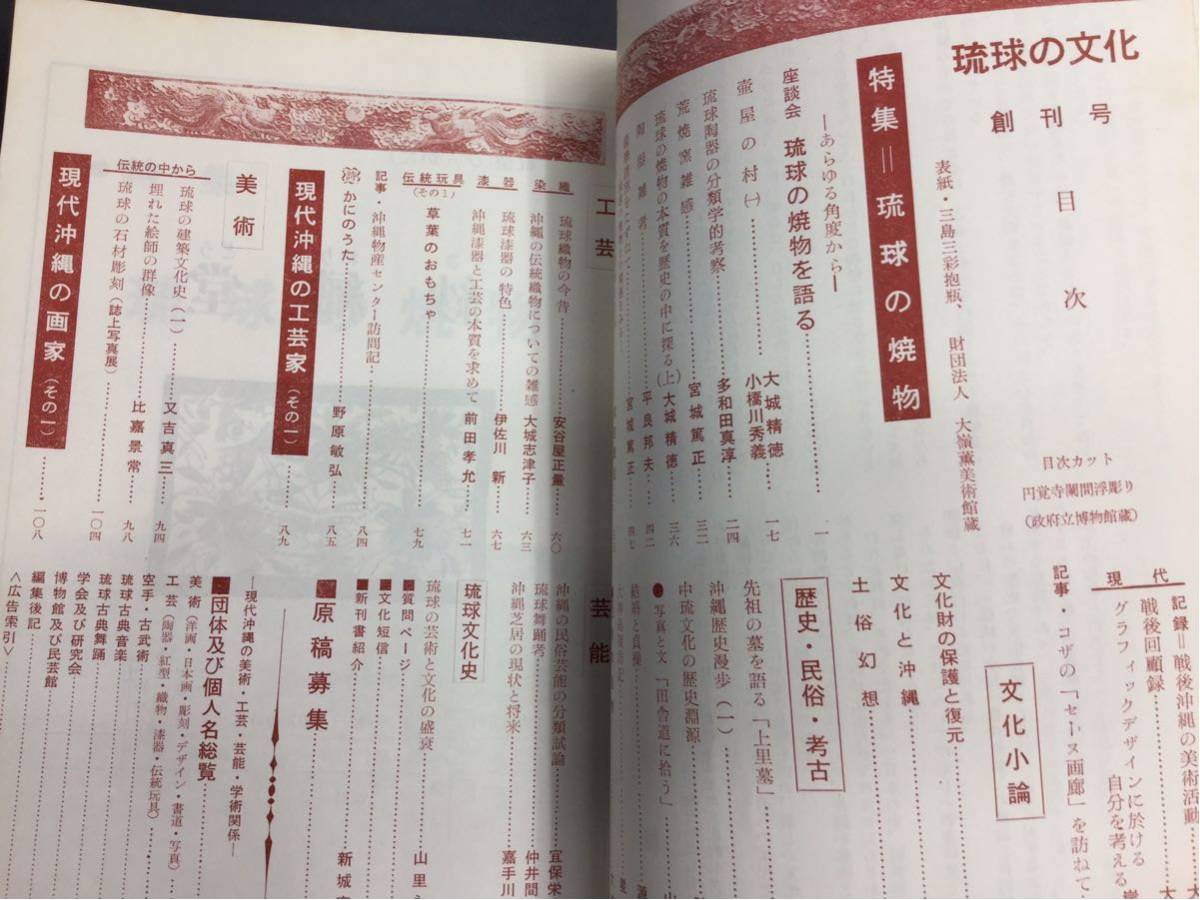 琉球の文化
創刊号
目次
表紙・三島三彩抱瓶、 財団法人 大嶺薫美術館蔵
目次カット
円覚寺欄間浮彫り
(政府立博物館蔵)
特集＝琉球の焼物
―あらゆる角度から―
座談会 琉球の焼物を語る 一
壷屋の村 ㈠ 大城精徳 小橋川秀義 一七
琉球陶器の分類学的考察 多和田真淳 二四
荒焼窯雑感 宮城篤正 三二
琉球の焼物の本質を歴史の中に探る(上) 大城精徳 三六
陶器雑考 平良邦夫 四二
宮城篤正 四七
現代
記録＝戦後沖縄の美術活動
戦後回顧録
グラフィックデザインに於ける
自分を考える
記事・コザの「セーヌ画廊」を訪ねて
文化小論
文化財の保護と復元
文化と沖縄
土俗幻想
歴史・民俗・考古
先祖の墓を語る「上里墓」
沖縄歴史漫歩(一)
中琉文化の歴史淵源
●写真と文「田舎道に拾う」
結婚と貞操
工芸
染織
琉球織物の今昔 安谷屋正量 六〇
沖縄の伝統織物についての雑感 大城志津子 六三
漆器
琉球漆器の特色 伊佐川新 六七
沖縄漆器と工芸の本質を求めて 前田孝允 七一
伝統玩具
(その1)
草葉のおもちゃ 七九
記事・沖縄物産センター訪問記 八四
かにのうた 野原敏弘 八五
現代沖縄の工芸家(その一) 八九
美術
伝統の中から
琉球の建築文化史(一) 又吉真三 九四
埋れた絵師の群像 比嘉景常 九八
琉球の石材彫刻(誌上写真展) 一〇四
現代沖縄の画家(その一) 一〇八
芸能
沖縄の民俗芸能の分類試論 宜保栄
琉球舞踊考 仲井間
沖縄芝居の現状と将来 嘉手川
琉球文化史
琉球の芸術と文化の盛衰 山里
■質問ページ
■文化短信
■新刊書紹介 新城
■原稿募集
―現代沖縄の美術・工芸・芸能・学術関係―
■団体及び個人名総覧
美術(洋画・日本画・彫刻・デザイン・書道・写真)
工芸(陶器・紅型・織物・漆器・伝統玩具)
空手・古武術
琉球古典音楽
琉球古典舞踊
学会及び研究会
博物館及び民芸館
編集後記
〈広告索引〉